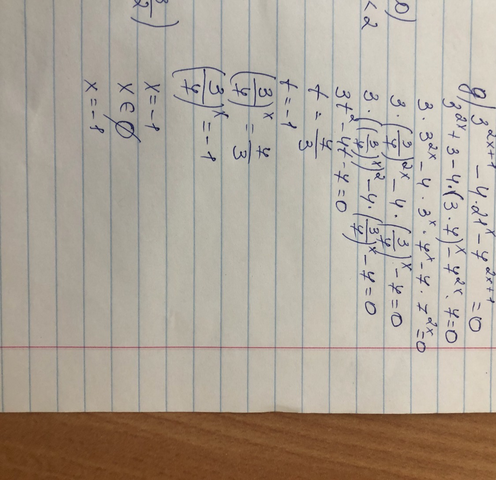 2)
< 2
3/2)
g) 3^(2x+1) - 4·21^x - 7^(2x+1) = 0
3^(2x) + 3 - 4·(3·7)^x - 7^(2x)·7 = 0
3·3^(2x) - 4·3^x·7^x - 7·7^(2x) = 0
3·(3/7)^(2x) - 4·(3/7)^x - 7 = 0
3·((3/7)^x)^2 - 4·(3/7)^x - 7 = 0
3t^2 - 4t - 7 = 0
t = 7/3
t = -1
(3/7)^x = 7/3
(3/7)^x = -1
x = -1
x ∈ ∅
x = -1